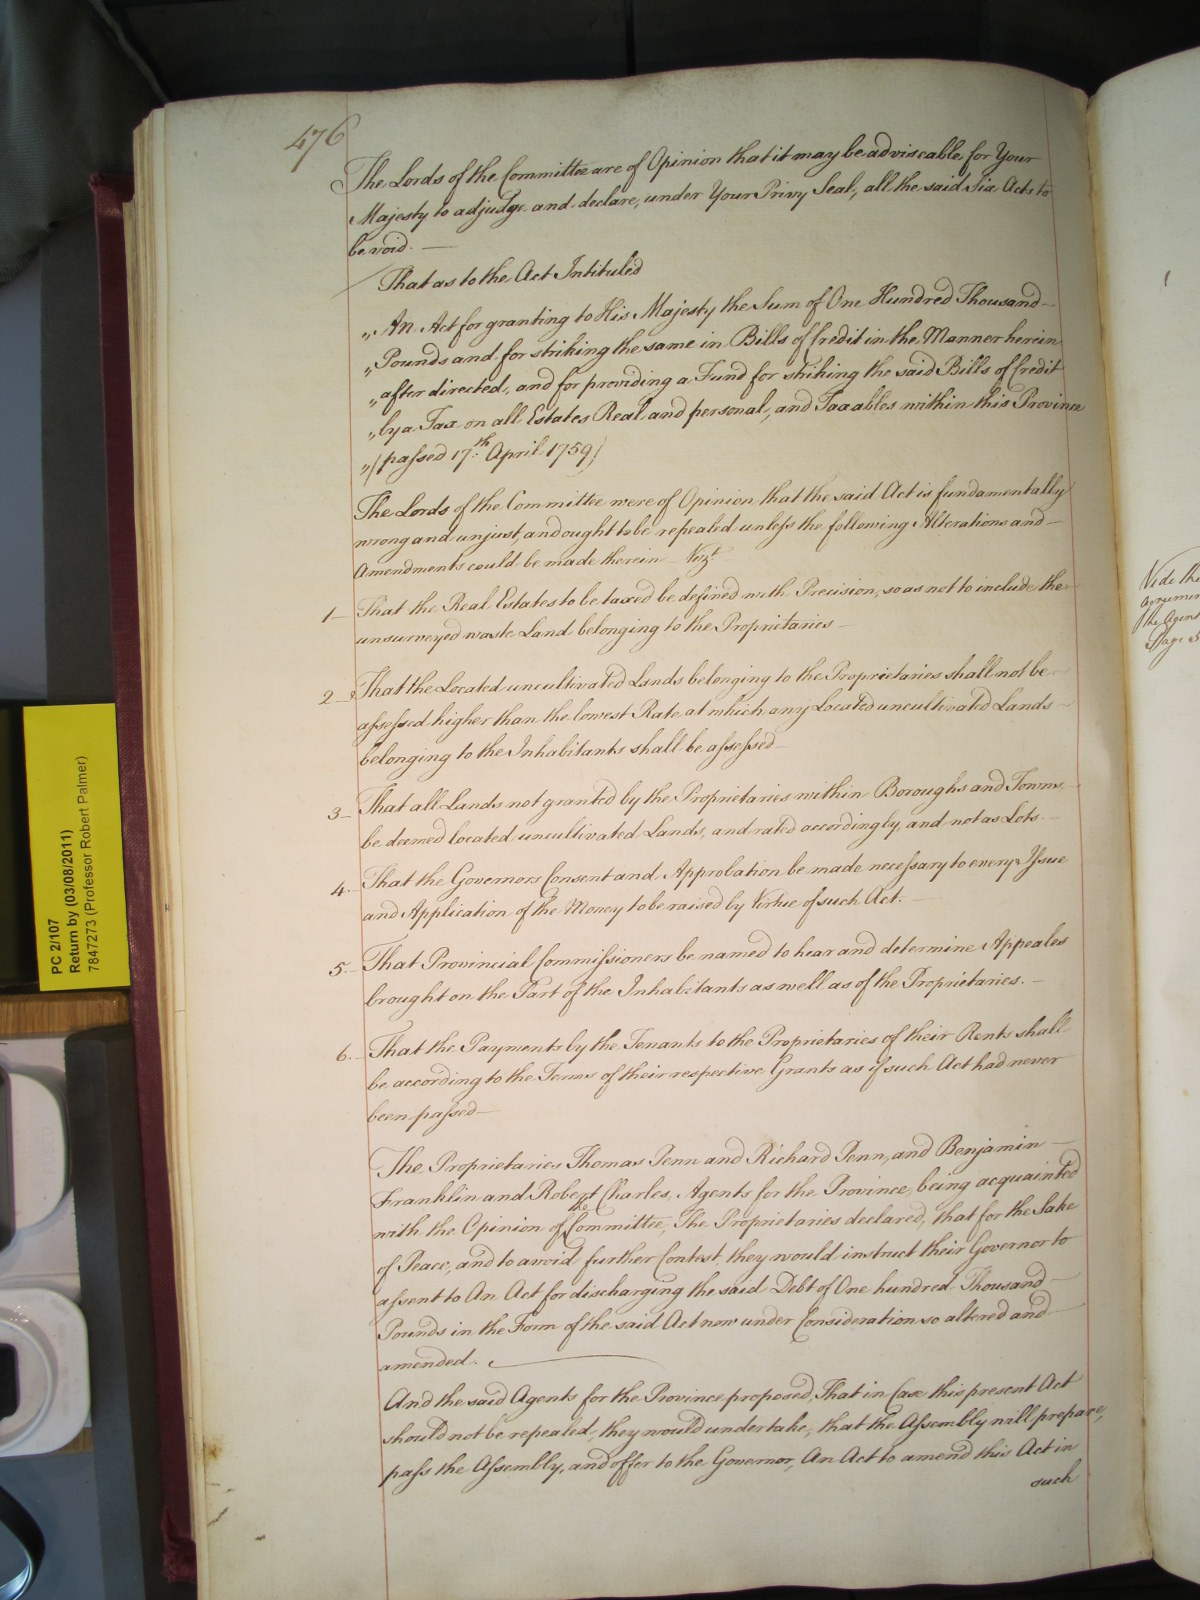 476
The Lords of the Committee are of Opinion that it may be adviseable for Your
Majesty to adjudge and declare, under Your Privy Seal, all the said Six Acts to
be void. —
That as to the Act Intituled
„ An Act for granting to His Majesty the Sum of One Hundred Thousand —
„ Pounds and for striking the same in Bills of Credit in the Manner herein
„ after directed, and for providing a Fund for striking the said Bills of Credit
„ by a Tax on all Estates Real and personal, and Taxables within this Province
„ (passed 17.th April 1759)
The Lords of the Committee were of Opinion that the said Act is fundamentally
wrong and unjust, and ought to be repealed unless the following Alterations and —
Amendments could be made therein — Vizt.
1 — That the Real Estates to be taxed be defined with Precision, so as not to include the
unsurveyed waste Land belonging to the Proprietaries —
2 — That the Located uncultivated Lands belonging to the Proprietaries shall not be
assessed higher than the lowest Rate at which any Located uncultivated Lands —
belonging to the Inhabitants shall be assessed —
3 — That all Lands not granted by the Proprietaries within Boroughs and Towns
be deemed located uncultivated Lands, and rated accordingly, and not as Lots. —
4. That the Governors Consent and Approbation be made necessary to every Issue
and Application of the Money to be raised by Virtue of such Act. —
5. — That Provincial Commissioners be named to hear and determine Appeales
brought on the Part of the Inhabitants as well as of the Proprietaries. —
6. — That the Payments by the Tenants to the Proprietaries of their Rents shall
be according to the Terms of their respective Grants as if such Act had never
been passed —
The Proprietaries Thomas Penn and Richard Penn, and Benjamin —
Franklin and Robert Charles, Agents for the Province, being acquainted
with the Opinion of the Committee, The Proprietaries declared, that for the Sake
of Peace, and to avoid further Contest, they would instruct their Governor to
assent to An Act for discharging the said Debt of One hundred Thousand —
Pounds in the Form of the said Act now under Consideration so altered and —
amended. —
And the said Agents for the Province proposed, That in Case this present Act
should not be repealed, they would undertake, that the Assembly will prepare,
pass the Assembly, and offer to the Governor, An Act to amend this Act in
such
Vide the
the Agent
Page
PC 2/107
Return by (03/08/2011)
7847273 (Professor Robert Palmer)